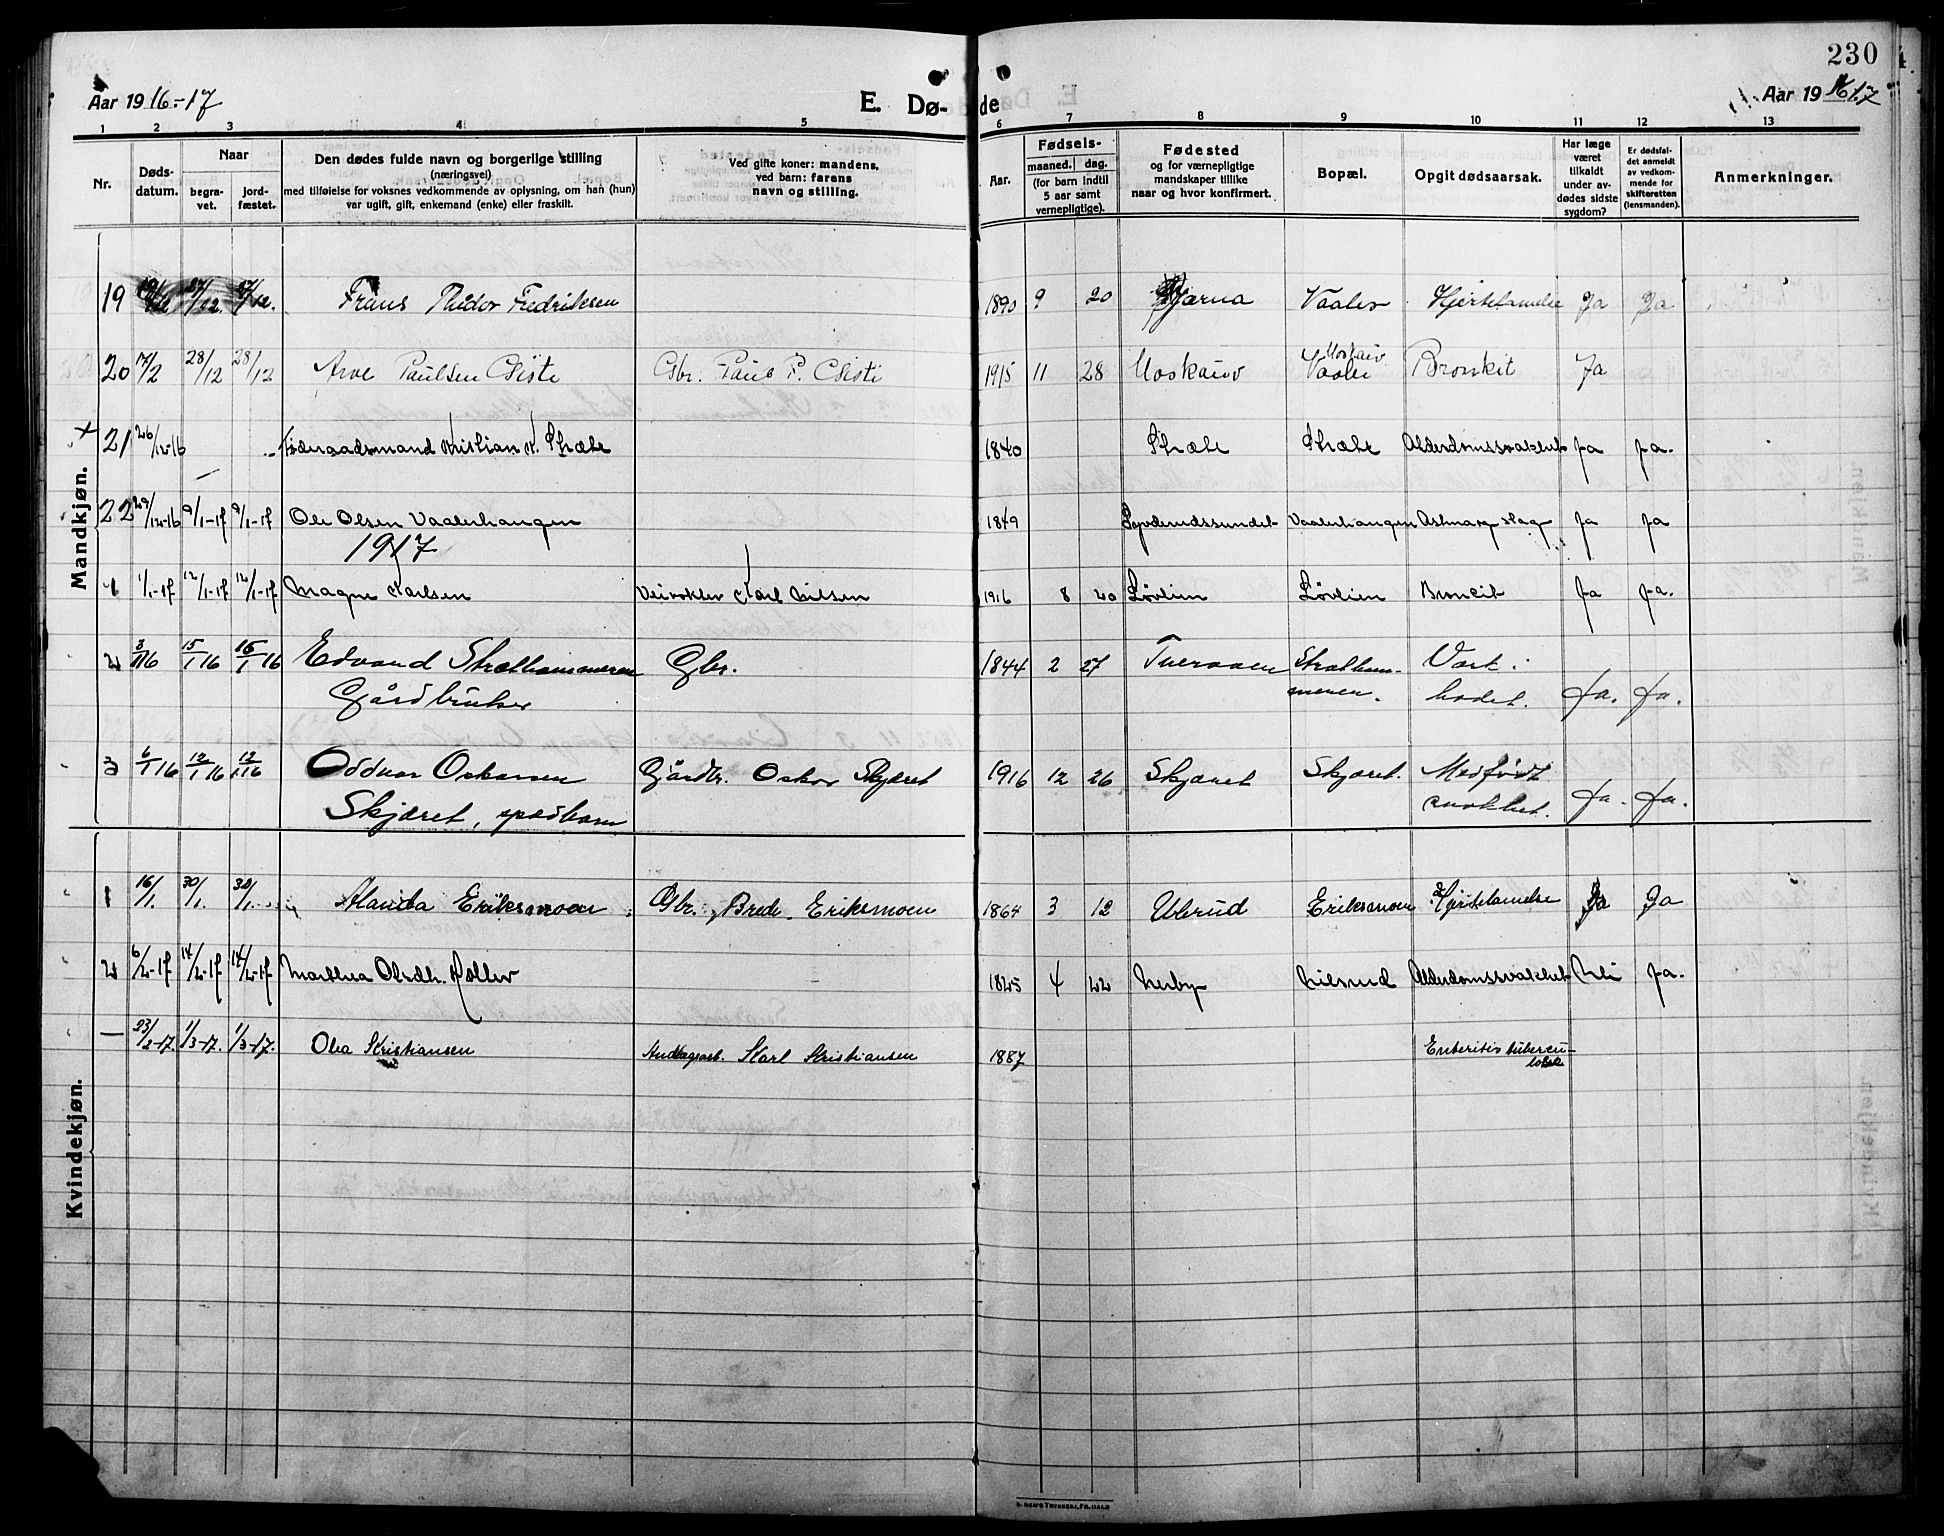 230
Aar 1916-17
E. Dø-
de
Aar 1916 17
1 2 3 4 5 6 7 8 9 10 11 12 13
Nr.
Døds-
datum.
Naar
begra-
vet.
jord-
fæstet.
Den dødes fulde navn og borgerlige stilling
(næringsvei)
med tilføielse for voksnes vedkommende av oplysning, om han (hun)
var ugift, gift, enkemand (enke) eller fraskilt.
Ved gifte koner: mandens,
ved barn: farens
navn og stilling.
Aar.
Fødsels-
maaned. dag.
(for barn indtil
5 aar samt
vernepligtige).
Fødested
og for værnepligtige
mandskaper tillike
naar og hvor konfirmert.
Bopæl.
Opgit dødsaarsak.
Har læge
været
tilkaldt
under av-
dødes sidste
sygdom?
Er dødsfal-
det anmeldt
av vedkom-
mende for
skifteretten
(lensmanden).
Anmerkninger.
Mandkjøn.
19 27/12 27/12. Frans Fredriksen 1890 9 20 Vaaler Hjertelamelse Ja Ja
20 17/2 28/12 28/12 Arve Paulsen Gbr. 1915 11 28 Moskæiv Moskæiv
Vaaler Bronkit Ja
+ 21 26/12-16 Kristian K. Stræte 1840 Stræte Stræte Alderdomssvakhet Ja Ja.
22 29/12-16 9/1-17 9/1-17 Ole Olsen Vaalerhaugen 1849 Vaalerhaugen Ja Ja
1917
1 1/1-17 12/1-17 12/1-17 Magne Karlsen Veivokter Karl Nilsen 1916 8 20 Løvlien Løvlien Broncit Ja Ja.
2 3/1 16 15/1 16 15/1 16 Edvard Gbr. 1844 2 27 Tveraaen Stætham- Vœrk i
Gårdbruker meren. hodet. Ja. Ja.
3 6/1 16 12/1 16 12/1 16 Oddvar Oskarsen Gårdbr. Oskar Skjæret 1916 12 26 Skjæret Skjæret. Medfødt
Skjæret, spædbarn svakhet. Ja. Ja.
Kvindekjøn.
1 16/1. 30/1. 30/1. Eriksmoen Gbr. Brede Eriksmoen 1864 3 12 Ulerud Eriksmoen Hjertelamelse Ja Ja
2 6/2-17 14/2-17 14/2-17 Marthea Olsdtr. 1825 4 22 Nerby Nilsrud Alderdomssvakhet Nei Ja.
— 23/2-17. 1/3-17. 1/3-17. Olea Kristiansen Karl Kristiansen 1887 Enteritis tubercu-
losa